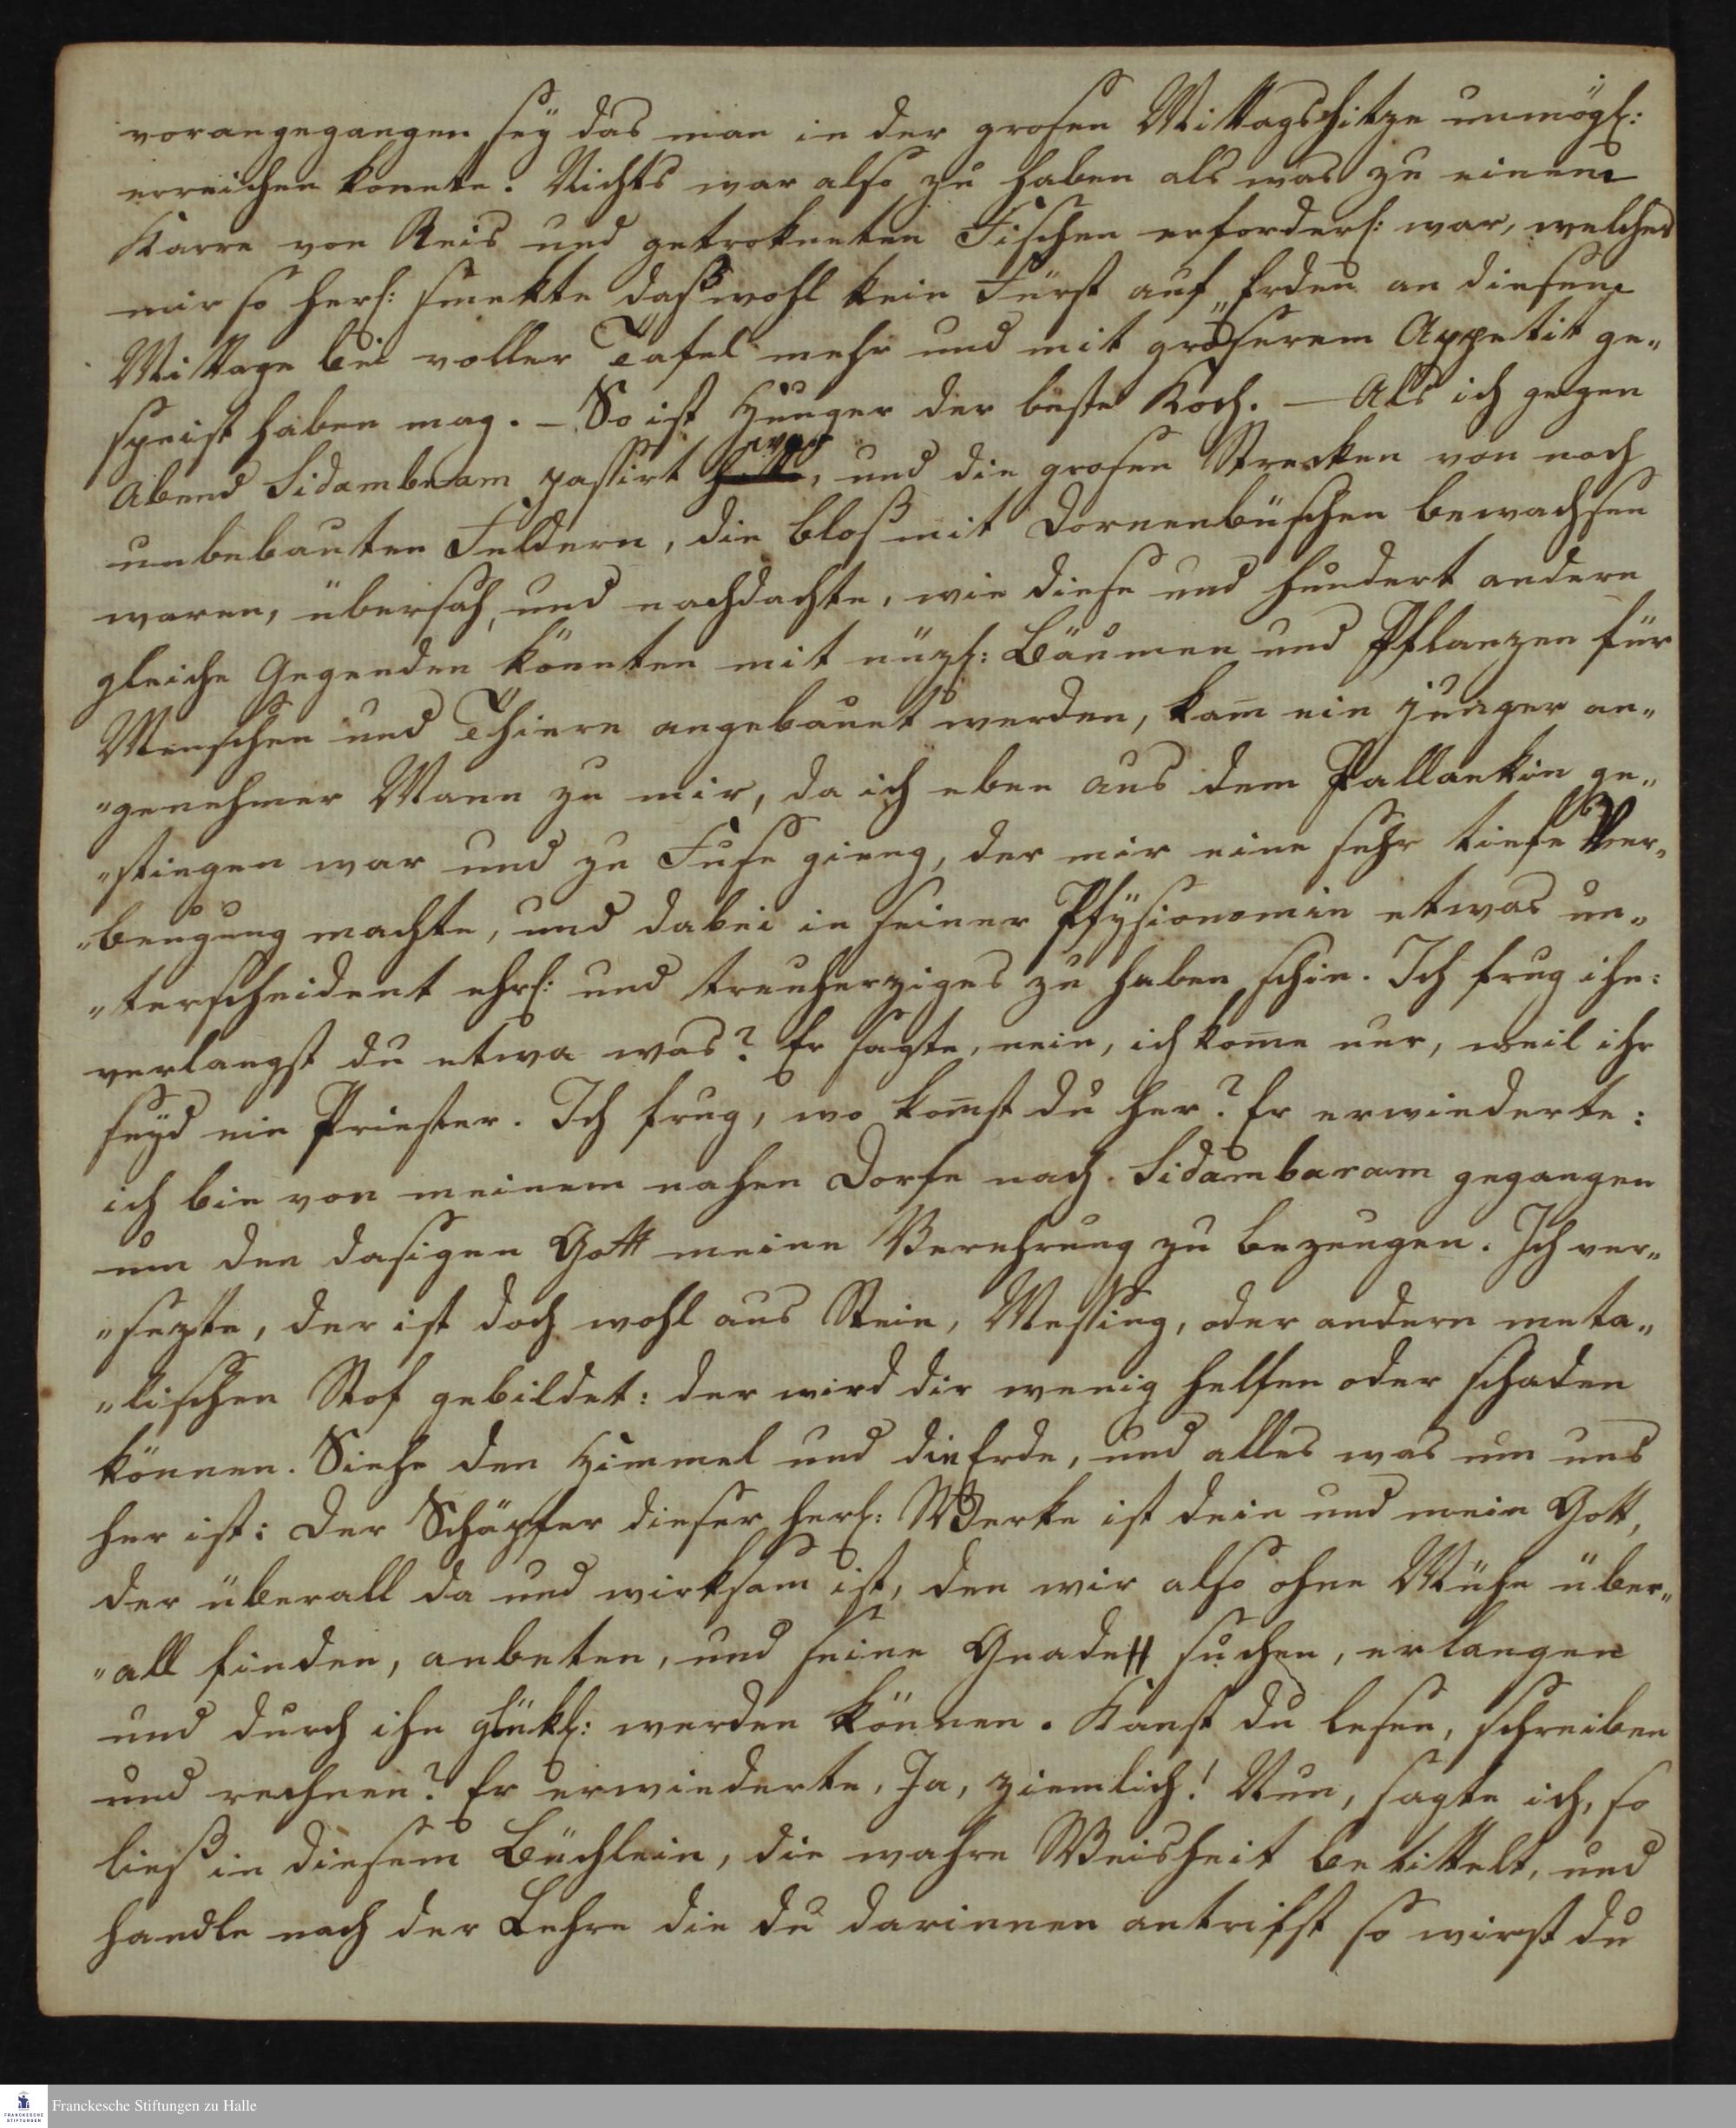 vorangegangen seÿ das man in der grosen Mittagshitze unmögl:
erreichen konnte. Nichts war also zu haben als was zu einem
Karre von Reis und getrokneten Fischen erforderl: war, welches
mir so herl: smekte daß wohl kein Fürst auf Erden an diesem
Mittage bei voller Tafel mehr und mit gröserem Appetit ge„
speist haben mag. – So ist Hunger der beste Koch. – Als ich gegen
Abend Sidambram passirt hatte war, und die grosen Strecken von noch
unbebauten Feldern, die blos mit Dornenbüschen bewachsen
waren, übersah, und nachdachte, wie diese und hundert andere
gleiche Gegenden könnten mit nüzl: Bäumen und Pflanzen für
Menschen und Thiere angebauet werden, kam̄ ein junger an„
„genehmer Mann zu mir, da ich eben aus dem Pallankin ge„
„stiegen war und zu Fuse gieng, der mir eine sehr tiefe Ver„
„beugung machte, und dabei in seiner Phÿsionomie etwas un„
„terscheident ehrl: und treuherziges zu haben schin. Ich frug ihn:
verlangst du etwa was? Er sagte, nein, ich kom̄e nur, weil ihr
seÿd ein Priester. Ich frug, wo kom̄st du her? Er erwiederte:
ich bin von meinem nahen Dorfe nach Sidambaram gegangen
um den dasigen Gott meine Verehrung zu bezeugen. Ich ver„
„sezte, der ist doch wohl aus Stein, Messing, oder andern meta„
„lischen Stof gebildet: der wird dir wenig helfen oder schaden
können. Siehe den Himmel und die Erde, und alles was um uns
her ist: Der Schöpfer dieser herl: Werke ist dein und mein Gott,
der überall da und wirksam ist, den wir also ohne Mühe über„
„all finden, anbeten, und seine Gnade suchen, erlangen
und durch ihn glükl: werden können. Kanst du lesen, schreiben
und rechnen? Er erwiederte, Ja, ziemlich! Nun, sagte ich, so
ließ in diesem Büchlein, die wahre Weisheit betittelt, und
handle nach der Lehre die du darinnen antrifst so wirst du
Franckesche Stiftungen zu Halle
FRANCKESCHE
STIFTUNGEN